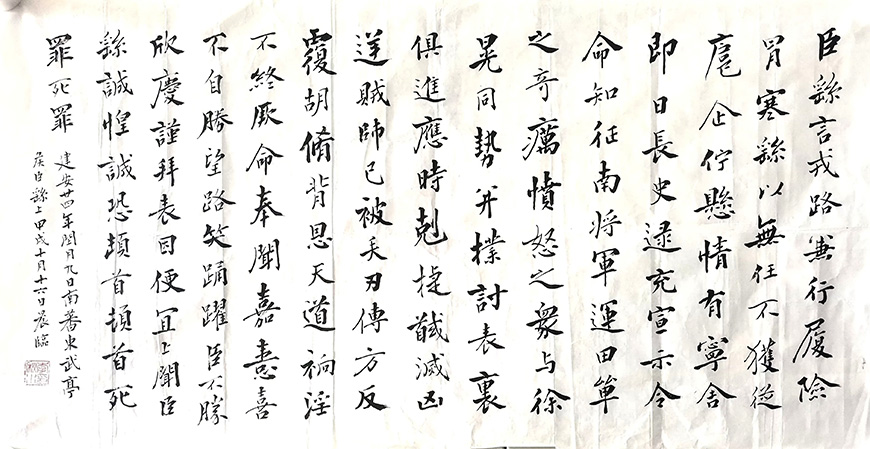 臣繇言戎路兼行履險
冐寒繇以無任不獲從
扈企佇懸情有寧舍
即日長史逯充宣示令
命知征南將軍運田單
之奇癘憤怒之衆与徐
晃同勢并撲討表裏
俱進應時剋捷馘滅凶
逆賊帥已被矢刃傳方反
覆胡脩背恩天道禍淫
不終厥命奉聞嘉憙喜
不自勝望路笑踊躍臣不勝
欣慶謹拜表因便宜上聞臣
繇誠惶誠恐頓首頓首死
罪死罪
建安廿四年閏月九日南蕃東武亭
侯臣繇上甲戌十月十六日晨臨